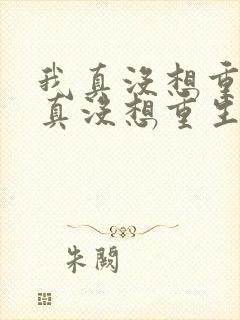 我真没想重
真没想重生
朱阙